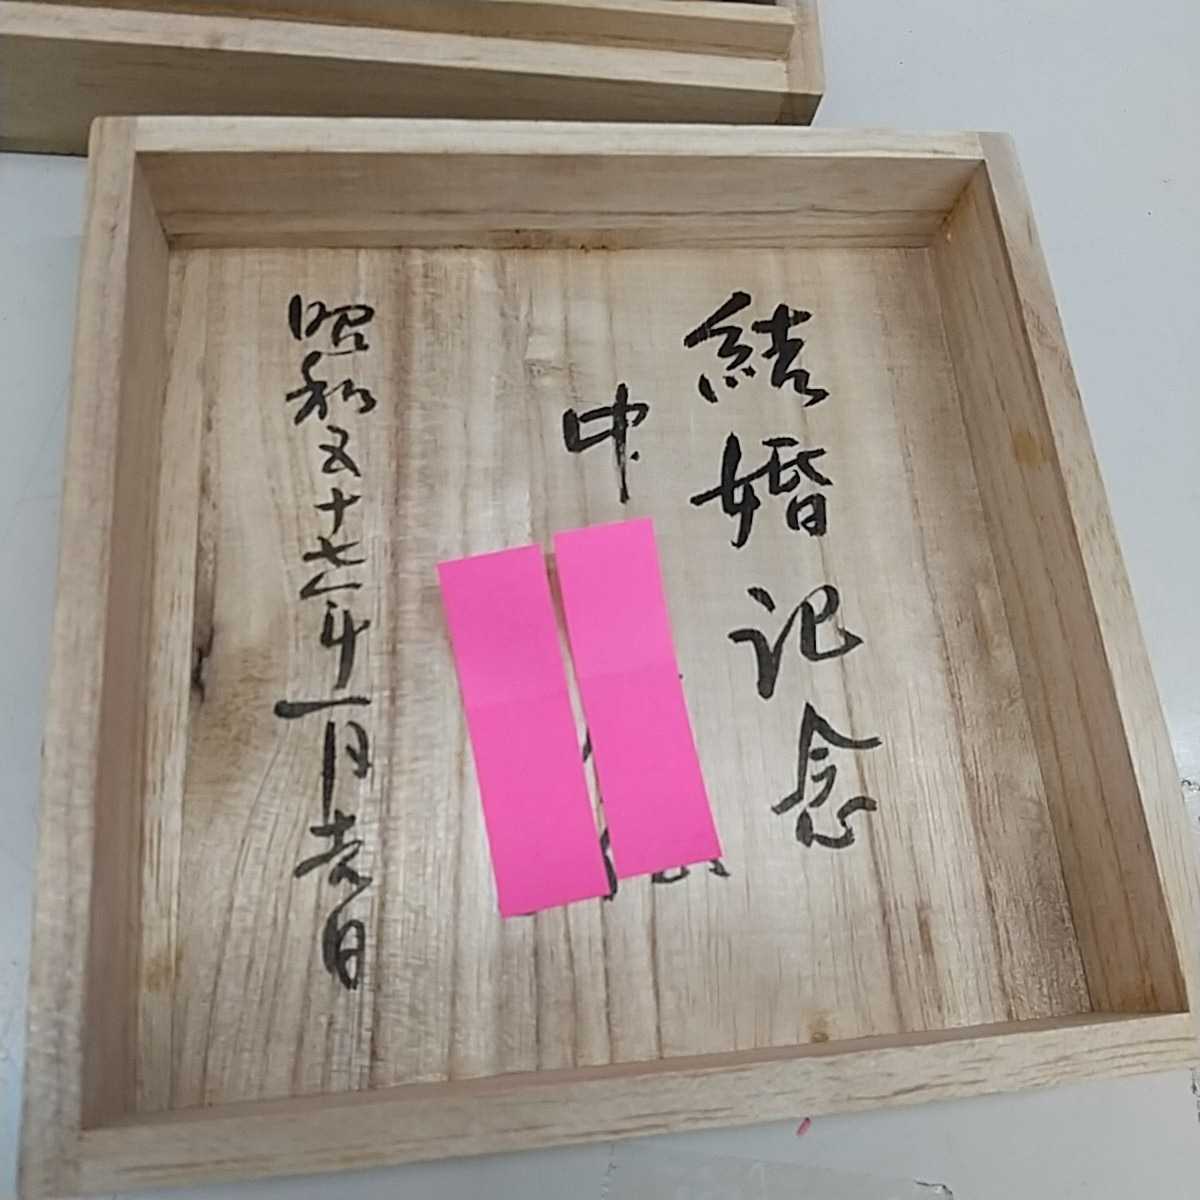 結婚記念
中
昭和五十七年一月吉日